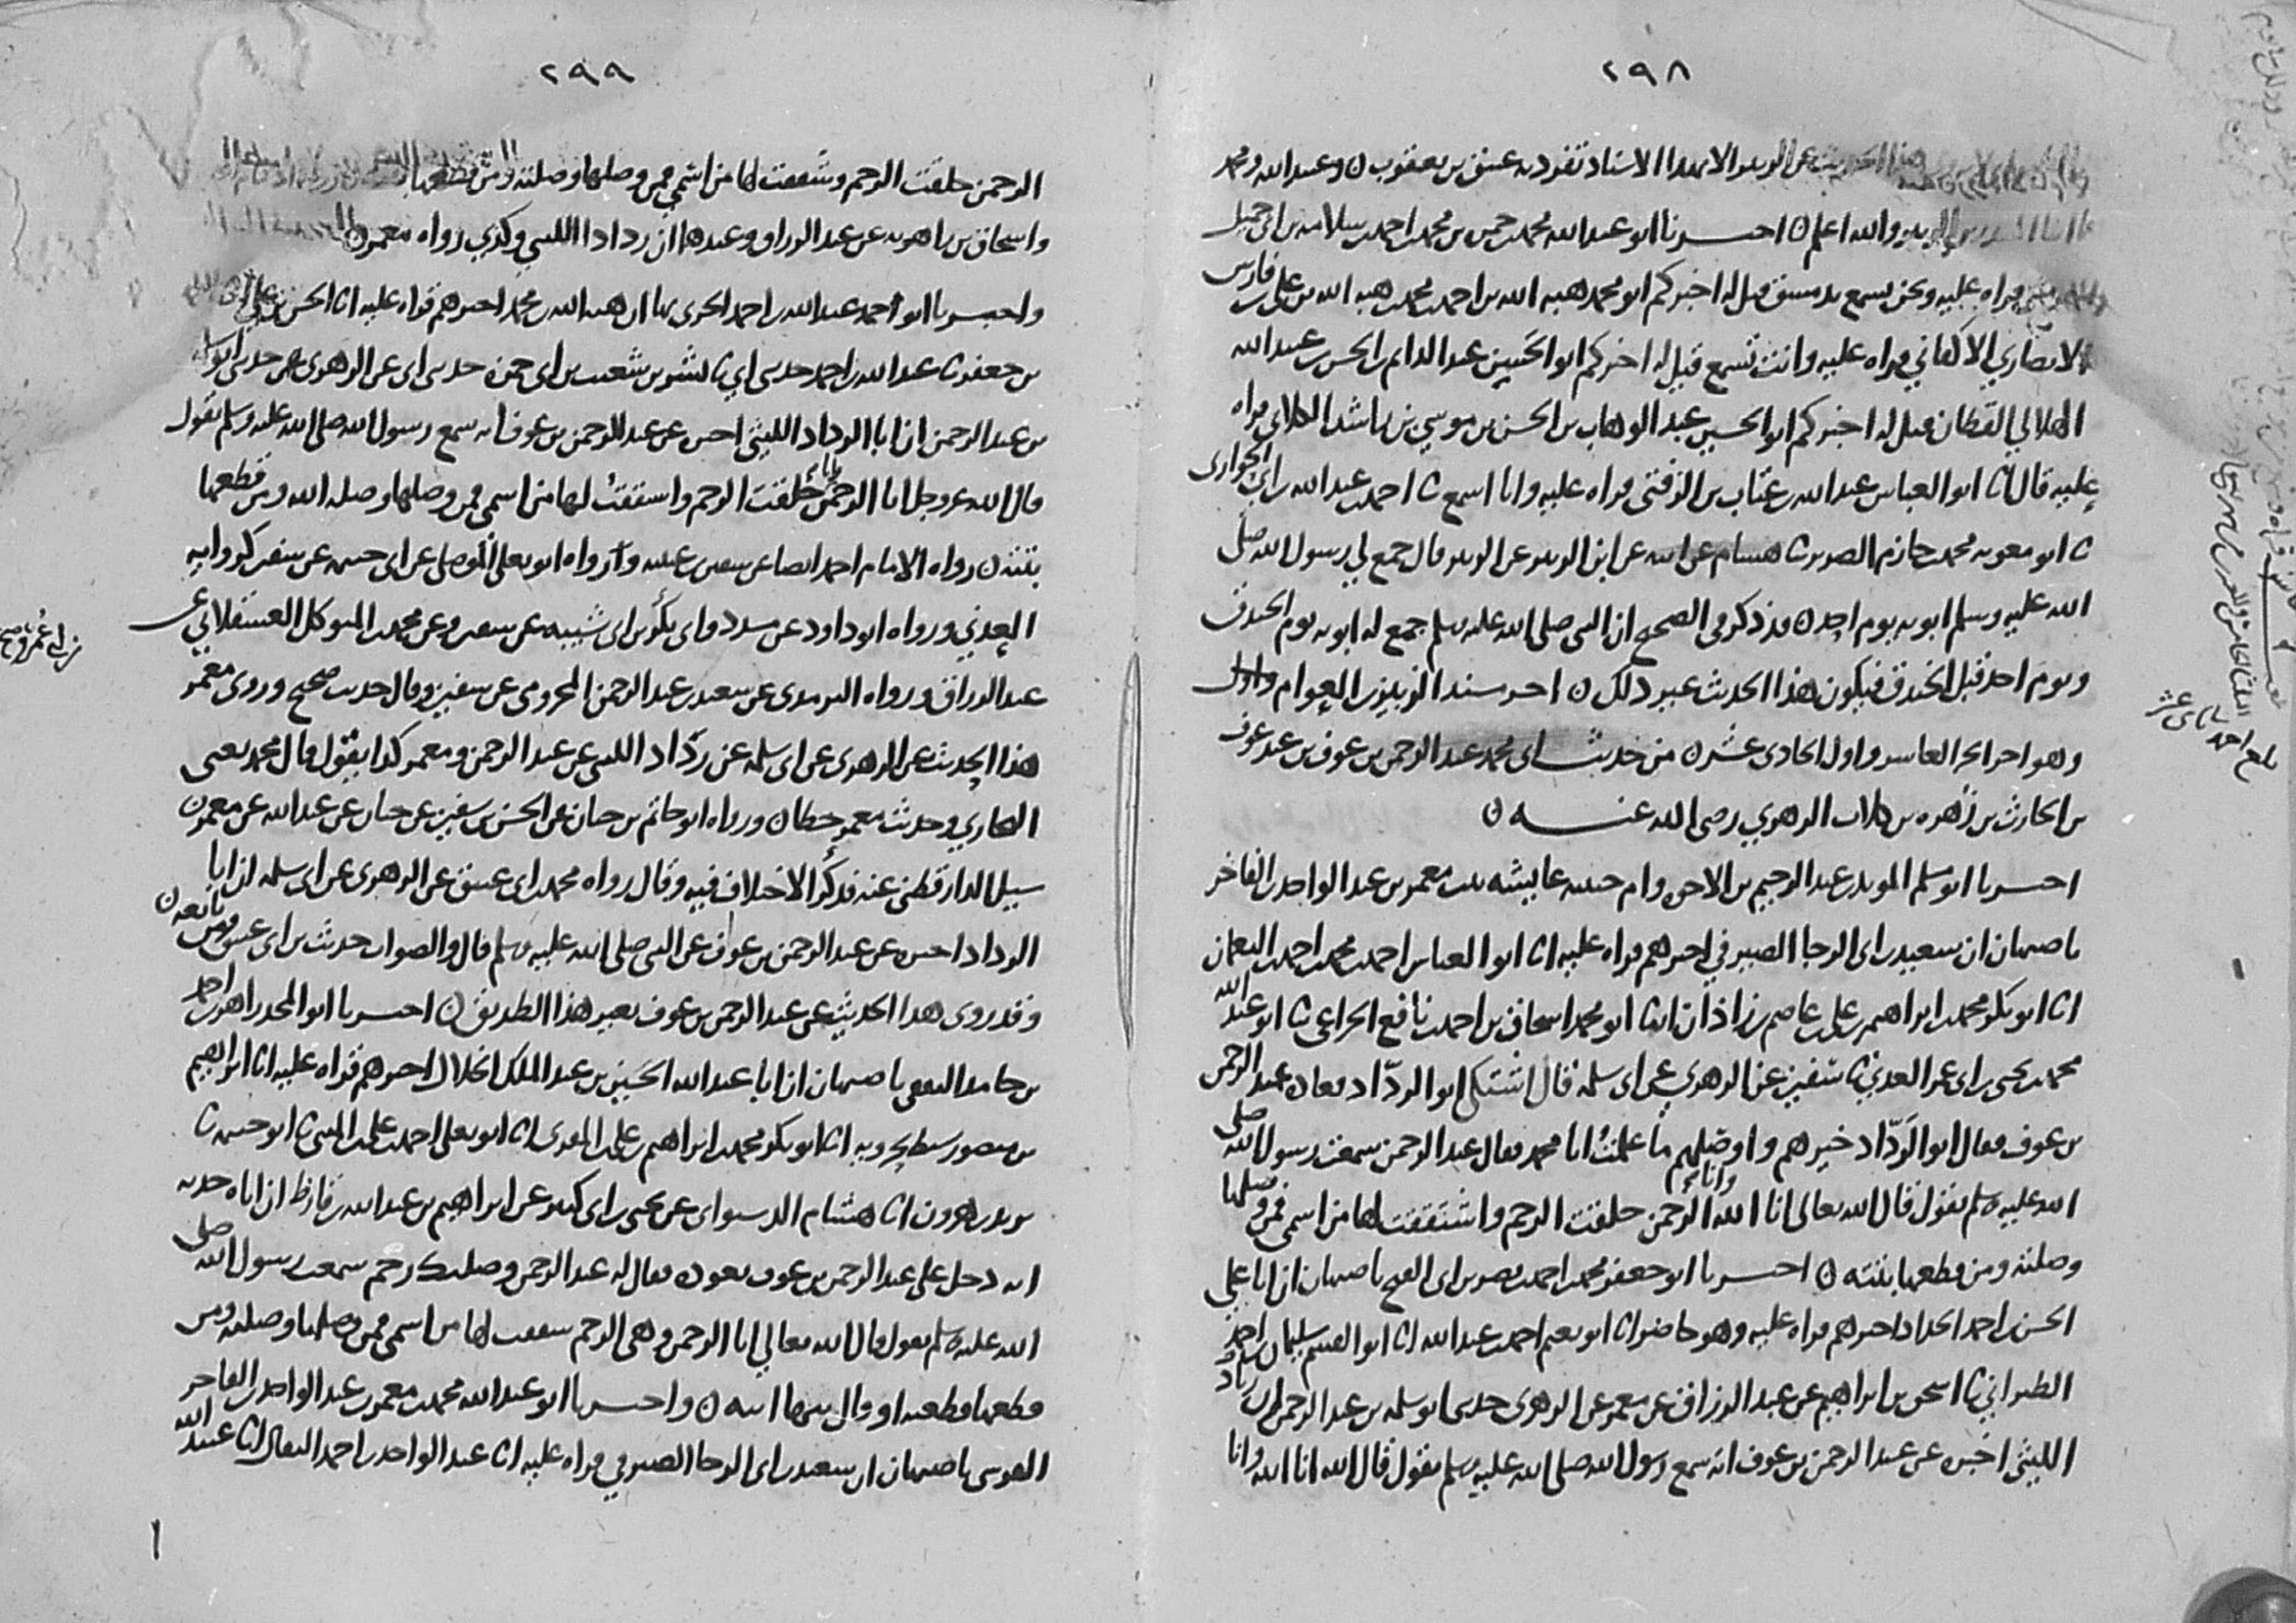 ٢٩٨
هذا الحديث عن الزبير الا بهذا الاسناد تفرد به عتيق بن يعقوب ن وعبد الله ومحمد
والله اعلم ن اخبرنا ابو عبد الله محمد بن حمزة بن محمد بن احمد بن سلامه بن ابي جميل
قراه عليه ونحن نسمع بدمشق قيل له اخبركم ابو محمد هبه الله بن احمد بن محمد بن هبه الله بن علي بن فارس
الانصاري الاكفاني قراه عليه وانت تسمع قيل له اخبركم ابو الحسين عبد الدايم بن الحسن بن عبيد الله
الهلالي القطان قيل له اخبركم ابو الحسين عبد الوهاب بن الحسن بن موسي بن راشد الكلابي قراه
عليه قال انا ابو العباس عبد الله بن عتاب بن الزفتي قراه عليه وانا اسمع ثنا احمد بن عبد الله بن ابي الحواري
ثنا ابو معويه محمد بن حازم الضرير ثنا هشام عن ابيه عن ابن الزبير عن الزبير قال جمع لي رسول الله صلى
الله عليه وسلم ابويه يوم احد ن قد ذكر في الصحيح ان النبي صلى الله عليه وسلم جمع له ابويه يوم الخندق
ويوم احد قبل الخندق فيكون هذا الحديث غير ذلك ن اخر مسند الزبير بن العوام واول
وهو اخر الجز العاشر واول الحادي عشر ن من حديث ابي محمد عبد الرحمن بن عوف بن عبد عوف
بن الحارث بن زهره بن كلاب الزهري رضي الله عنه ن
اخبرنا ابو مسلم المويد بن عبد الرحيم بن الاخوه وام حبيبه عايشه بنت معمر بن عبد الواحد بن الفاخر
باصبهان ان سعيد بن ابي الرجا الصيرفي اخبرهم قراه عليه انا ابو العباس احمد بن محمد بن احمد بن النعمان
انا ابو بكر محمد بن ابراهيم بن علي بن عاصم بن زاذان انبا ابو محمد اسحاق بن احمد بن نافع الخزاعي ثنا ابو عبد الله
محمد بن يحيى بن ابي عمر العدني ثنا سفين عن الزهري عن ابي سلمه قال اشتكى ابو الرداد فعاده عبد الرحمن
بن عوف فقال ابو الرداد خيرهم واوصلهم ما علمت ابا محمد فقال عبد الرحمن سمعت رسول الله صلى
الله عليه وسلم يقول قال الله تعالى انا الله وانا الرحمن خلقت الرحم واشتققت لها من اسمي فمن وصلها
وصلته ومن قطعها بتته ن اخبرنا ابو جعفر محمد بن احمد بن نصر بن ابي الفتح باصبهان ان ابا علي
الحسن بن احمد الحداد اخبرهم قراه عليه وهو حاضر انا ابو نعيم احمد بن عبد الله انا ابو القسم سليمان بن احمد
الطبراني ثنا اسحق بن ابراهيم عن عبد الرزاق عن معمر عن الزهري حدثني ابو سلمه بن عبد الرحمن ان رداد
الليثي اخبره عن عبد الرحمن بن عوف انه سمع رسول الله صلى الله عليه وسلم يقول قال الله انا الله وانا
٢٩٩
الرحمن خلقت الرحم وشققت لها من اسمي فمن وصلها وصلته ومن قطعها
واسحاق بن راهويه عن عبد الرزاق وعندهما ان ردادا الليثي وكذي رواه معمر ن
واخبرنا ابو احمد عبد الله بن احمد الحربي بها ان هبه الله بن محمد اخبرهم قراه عليه انا الحسن بن علي
بن جعفر ثنا عبد الله بن احمد حدثني ابي ثنا بشر بن شعيب بن ابي حمزه حدثني ابي عن الزهري حدثني ابو سلمه
بن عبد الرحمن ان ابا الرداد الليثي اخبره عن عبد الرحمن بن عوف انه سمع رسول الله صلى الله عليه وسلم يقول
قال الله عز وجل انا الرحمن خلقت الرحم واشتققت لها من اسمي فمن وصلها وصله الله ومن قطعها
بتته ن رواه الامام احمد ايضا عن سفين بن عيينه ورواه ابو يعلى الموصلي عن ابي خيثمه عن سفين كروايه
العدني ورواه ابو داود عن مسدد وابي بكر بن ابي شيبه عن سفين وعن محمد بن المتوكل العسقلاني عن
عبد الرزاق ورواه الترمذي عن سعيد بن عبد الرحمن المخزومي عن سفين وقال حديث صحيح وروى معمر
هذا الحديث عن الزهري عن ابي سلمه عن رداد الليثي عن عبد الرحمن ومعمر كذا يقول قال محمد يعني
البخاري وحديث معمر خطا ن ورواه ابو حاتم بن حبان عن الحسن بن سفين عن حبان عن عبد الله عن معمر ن
سيل الدارقطني عنه فذكر الاختلاف فيه وقال رواه محمد بن ابي عتيق عن الزهري عن ابي سلمه ان ابا
الرداد اخبره عن عبد الرحمن بن عوف عن النبي صلى الله عليه وسلم قال والصواب حديث بن ابي عتيق ومن تابعه ن
وقد روى هذا الحديث عن عبد الرحمن بن عوف بغير هذا الطريق ن اخبرنا ابو المجد زاهر بن احمد
بن حامد الثقفي باصبهان ان ابا عبد الله الحسين بن عبد الملك الخلال اخبرهم قراه عليه انا ابراهيم
بن منصور سبط بحرويه انا ابو بكر محمد بن ابراهيم بن علي المقري انا ابو يعلى احمد بن علي بن المثنى ثنا ابو خيثمه ثنا
يزيد بن هرون انا هشام الدستواي عن يحيى بن ابي كثير عن ابراهيم بن عبد الله بن قارظ ان اباه حدثه
انه دخل على عبد الرحمن بن عوف يعوده فقال له عبد الرحمن وصلتك رحم سمعت رسول الله صلى
الله عليه وسلم يقول قال الله تعالى انا الرحمن وهي الرحم شققت لها من اسمي فمن وصلها وصلته ومن
قطعها قطعته او قال بتها ابته ن واخبرنا ابو عبد الله محمد بن معمر بن عبد الواحد بن الفاخر
القرشي باصبهان ان سعيد بن ابي الرجا الصيرفي قراه عليه انا عبد الواحد بن احمد البقال انا عبيد الله